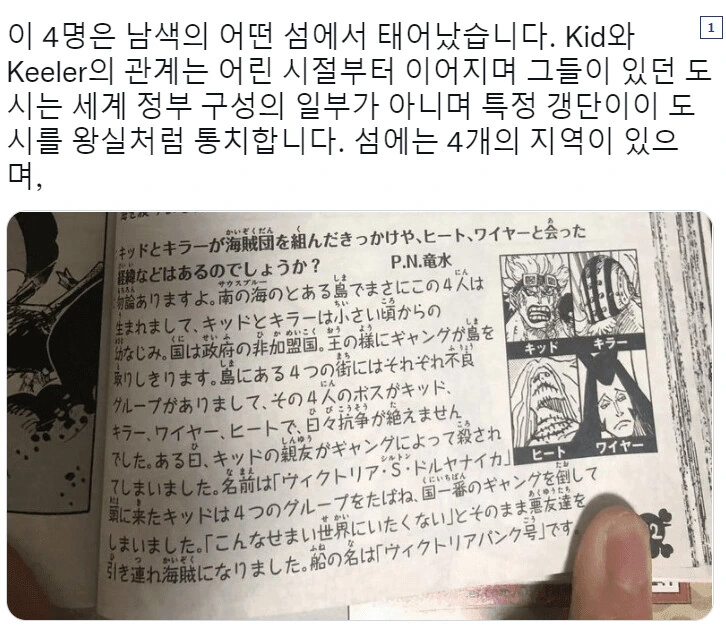 이 4명은 남색의 어떤 섬에서 태어났습니다. Kid와
Keeler의 관계는 어린 시절부터 이어지며 그들이 있던 도
시는 세계 정부 구성의 일부가 아니며 특정 갱단이이 도
시를 왕실처럼 통치합니다. 섬에는 4개의 지역이 있으
며,
1
キッドとキラーが海賊団を組んだきっかけや、ヒート、ワイヤーと会った
経緯などはあるのでしょうか? P.N.竜水
勿論ありますよ。南の海のとある島でまさにこの4人は
生まれまして、キッドとキラーは小さい頃からの
幼なじみ。国は政府の非加盟国。王の様にギャングが島を
取りしきります。島にある4つの街にはそれぞれ不良
グループがありまして、その4人のボスがキッド、
キラー、ワイヤー、ヒートで、日々抗争が絶えません
でした。ある日、キッドの親友がギャングによって殺され
てしまいました。名前は「ヴィクトリア・S・ドルヤナイカ」
頭に来たキッドは4つのグループをたばね、国一番のギャングを倒して
しまいました。「こんなせまい世界にいたくない」とそのまま悪友達を
引き連れ海賊になりました。船の名は「ヴィクトリアパンク号」です。
キッド キラー
ヒート ワイヤー